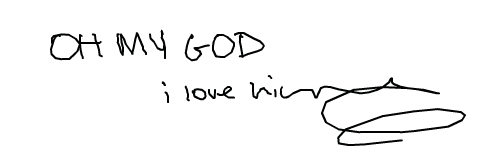 OH MY GOD
i love him